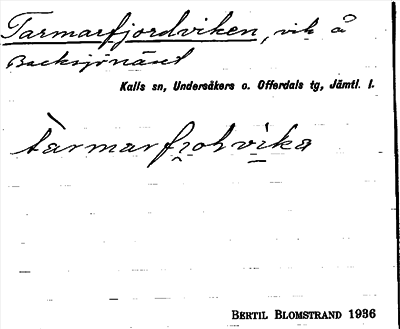 Tarmarfjordviken, vik å
Backsjönäset
Kalls sn, Undersåkers o. Offerdals tg, Jämtl. l.
tàrmarfjohvika
BERTIL BLOMSTRAND 1936